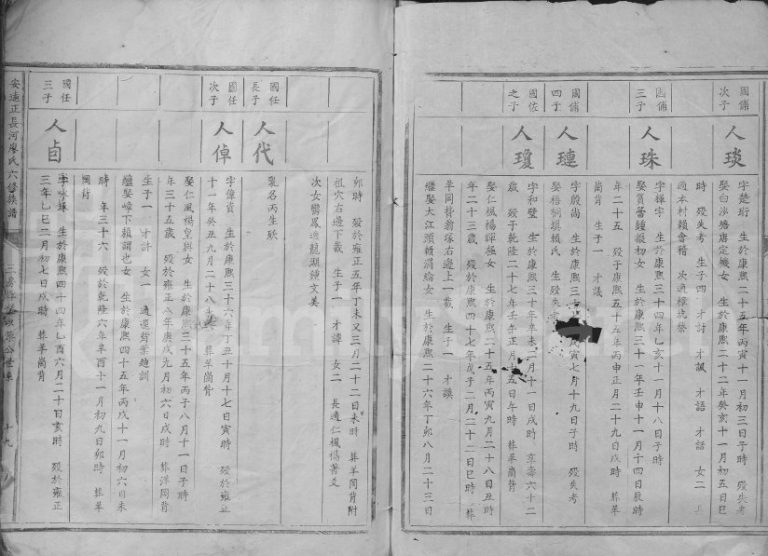 國備
次子
人琰
字楚珩 生於康熙二十五年丙寅十一月初三日子時 歿失考
娶白沙猪唐定機女 生於康熙二十二年癸亥十一月初五日巳
時 歿失考 生子四 才討 才諷 才語 才話 女二 長
適本村賴會稽
國備
三子
人珠
字樺字 生於康熙三十四年乙亥十一月十八日子時
娶貢 鍾 初女 生於康熙三十一年壬申十一月十四日辰時
年二十五 歿于康熙五十五年丙申正月二十九日戌時 葬羊
崗背 生子一 才議
國備
四子
人璉
字殷尚 生於康熙三十 庚 七月十九日子時 歿失考
娶梧桐塅賴氏 生歿失
國佐
之子
人瓊
字和璧 生於康熙三十年辛未二月十一日戌時 享壽六十二
歲 歿于乾隆二十七年壬午正月 五日午時 葬羊崗背
娶仁鳳楊 女 生於康熙二十五年丙寅九月二十八日丑時
年二十三歲 歿於康熙四十七年戊子二月二十二日巳時 葬
羊岡背翁塚右邊上一截 生子一 才謨
繼娶大江頭賴 女 生於康熙二十六年丁卯八月二十三日
卯時 歿於雍正五年丁未又三月二十二日未時 葬羊岡背附
祖穴右邊下截 生子一 才譚 女二 長適仁鳳
次女 鳳 適龍湖鍾文美
國任
長子
人代
乳名丙生 歿
國任
次子
人倬
字偉資 生於康熙三十六年丁丑十月十七日寅時 歿於雍正
十一年癸丑九月二十八 葬羊崗背
娶仁鳳楊 與女 生於康熙三十五年丙子八月十一日子時
年三十五歲 歿於雍正八年庚戌九月初六日戌時 葬洋岡背
生子一 才計 女一 適
繼娶嶂下賴謂也女 生於康熙四十五年丙戌十一月初六日未
時 年三十六 歿於乾隆六年辛酉十一月初九日卯時 葬羊
岡背
國任
三子
人卣
字 生於康熙四十四年乙酉六月二十日亥時 歿於雍正
三年乙巳二月初七日戌時 葬羊崗背
安遠正長河廖氏六修族譜
十九